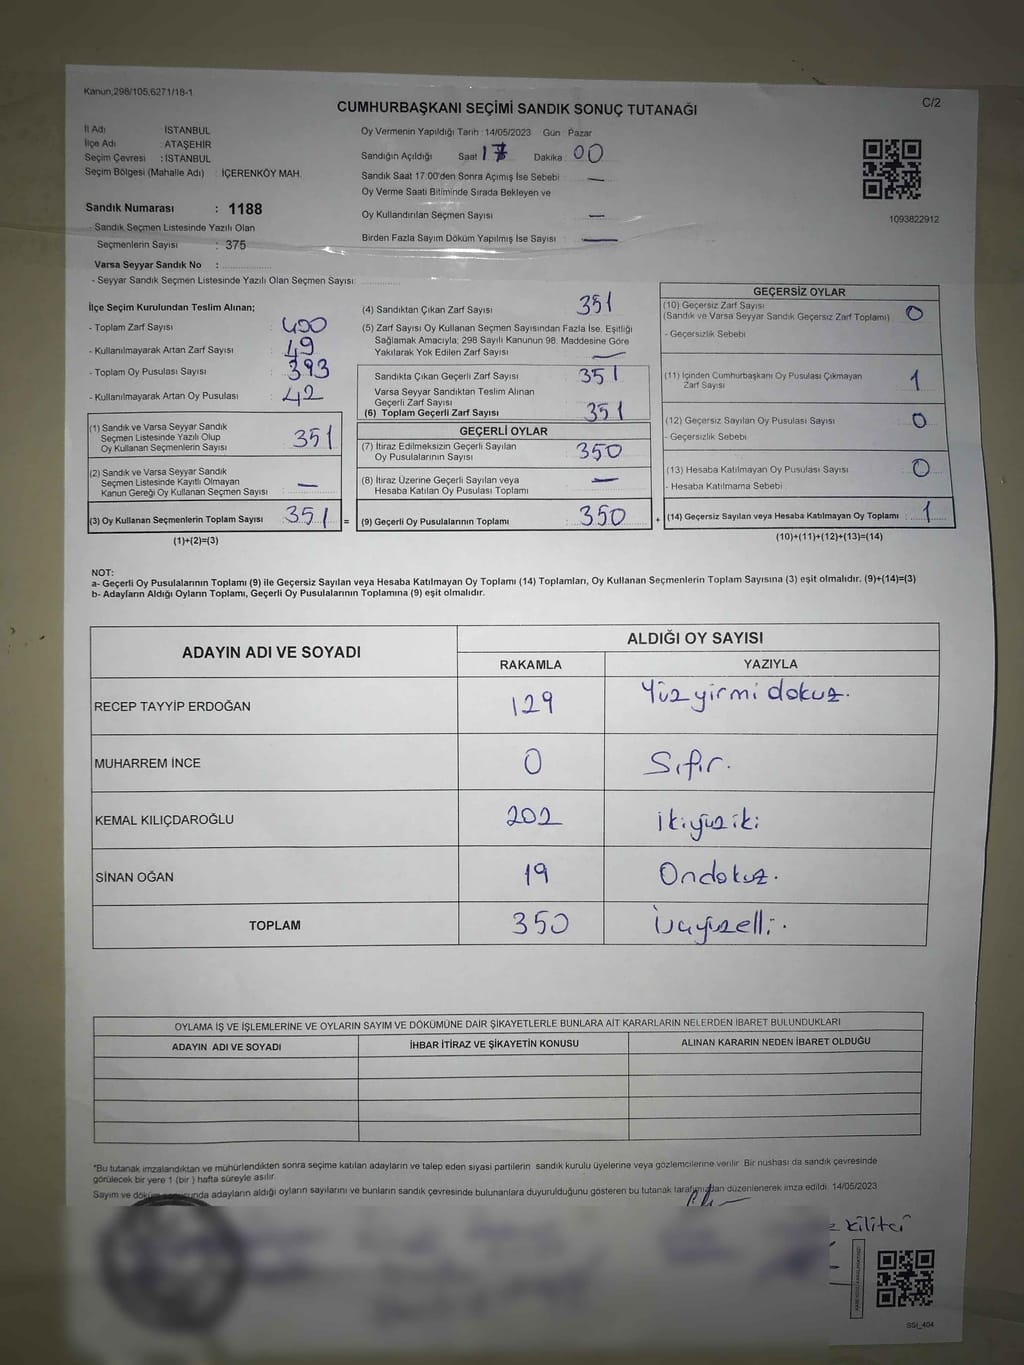 Kanun,298/105,6271/18-1
C/2
CUMHURBAŞKANI SEÇİMİ SANDIK SONUÇ TUTANAĞI
İl Adı İSTANBUL
İlçe Adı : ATAŞEHİR
Seçim Çevresi : İSTANBUL
Seçim Bölgesi (Mahalle Adı) : İÇERENKÖY MAH.
Sandık Numarası : 1188
- Sandık Seçmen Listesinde Yazılı Olan
Seçmenlerin Sayısı : 375
Varsa Seyyar Sandık No :
- Seyyar Sandık Seçmen Listesinde Yazılı Olan Seçmen Sayısı:
Oy Vermenin Yapıldığı Tarih : 14/05/2023 Gün : Pazar
Sandığın Açıldığı Saat 17 Dakika : 00
Sandık Saat 17:00'den Sonra Açımış İse Sebebi : —
Oy Verme Saati Bitiminde Sırada Bekleyen ve
Oy Kullandırılan Seçmen Sayısı : —
Birden Fazla Sayım Döküm Yapılmış İse Sayısı : —
1093822912
İlçe Seçim Kurulundan Teslim Alınan;
- Toplam Zarf Sayısı : 400
- Kullanılmayarak Artan Zarf Sayısı : 49
- Toplam Oy Pusulası Sayısı : 393
- Kullanılmayarak Artan Oy Pusulası : 42
(1) Sandık ve Varsa Seyyar Sandık
Seçmen Listesinde Yazılı Olup
Oy Kullanan Seçmenlerin Sayısı : 351
(2) Sandık ve Varsa Seyyar Sandık
Seçmen Listesinde Kayıtlı Olmayan
Kanun Gereği Oy Kullanan Seçmen Sayısı : —
(3) Oy Kullanan Seçmenlerin Toplam Sayısı : 351 =
(1)+(2)=(3)
(4) Sandıktan Çıkan Zarf Sayısı : 351
(5) Zarf Sayısı Oy Kullanan Seçmen Sayısından Fazla İse, Eşitliği
Sağlamak Amacıyla; 298 Sayılı Kanunun 98. Maddesine Göre
Yakılarak Yok Edilen Zarf Sayısı : —
Sandıkta Çıkan Geçerli Zarf Sayısı : 351
Varsa Seyyar Sandıktan Teslim Alınan
Geçerli Zarf Sayısı
(6) Toplam Geçerli Zarf Sayısı : 351
GEÇERLİ OYLAR
(7) İtiraz Edilmeksizin Geçerli Sayılan
Oy Pusulalarının Sayısı : 350
(8) İtiraz Üzerine Geçerli Sayılan veya
Hesaba Katılan Oy Pusulası Toplamı : —
(9) Geçerli Oy Pusulalarının Toplamı : 350 +
GEÇERSİZ OYLAR
(10) Geçersiz Zarf Sayısı
(Sandık ve Varsa Seyyar Sandık Geçersiz Zarf Toplamı) : 0
- Geçersizlik Sebebi
(11) İçinden Cumhurbaşkanı Oy Pusulası Çıkmayan
Zarf Sayısı : 1
(12) Geçersiz Sayılan Oy Pusulası Sayısı : 0
- Geçersizlik Sebebi
(13) Hesaba Katılmayan Oy Pusulası Sayısı : 0
- Hesaba Katılmama Sebebi
(14) Geçersiz Sayılan veya Hesaba Katılmayan Oy Toplamı : 1
(10)+(11)+(12)+(13)=(14)
NOT:
a- Geçerli Oy Pusulalarının Toplamı (9) ile Geçersiz Sayılan veya Hesaba Katılmayan Oy Toplamı (14) Toplamları, Oy Kullanan Seçmenlerin Toplam Sayısına (3) eşit olmalıdır. (9)+(14)=(3)
b- Adayların Aldığı Oyların Toplamı, Geçerli Oy Pusulalarının Toplamına (9) eşit olmalıdır.
ADAYIN ADI VE SOYADI ALDIĞI OY SAYISI
RAKAMLA YAZIYLA
RECEP TAYYİP ERDOĞAN 129 Yüz yirmi dokuz.
MUHARREM İNCE 0 Sıfır.
KEMAL KILIÇDAROĞLU 202 ikiyüz iki
SİNAN OĞAN 19 Ondokuz.
TOPLAM 350
OYLAMA İŞ VE İŞLEMLERİNE VE OYLARIN SAYIM VE DÖKÜMÜNE DAİR ŞİKAYETLERLE BUNLARA AİT KARARLARIN NELERDEN İBARET BULUNDUKLARI
ADAYIN ADI VE SOYADI İHBAR İTİRAZ VE ŞİKAYETİN KONUSU ALINAN KARARIN NEDEN İBARET OLDUĞU
*Bu tutanak imzalandıktan ve mühürlendikten sonra seçime katılan adayların ve talep eden siyasi partilerin sandık kurulu üyelerine veya gözlemcilerine verilir. Bir nüshası da sandık çevresinde
görülecek bir yere 1 (bir ) hafta süreyle asılır.
Sayım ve döküm sonucunda adayların aldığı oyların sayılarını ve bunların sandık çevresinde bulunanlara duyurulduğunu gösteren bu tutanak tarafımızdan düzenlenerek imza edildi. 14/05/2023
SSİ_404